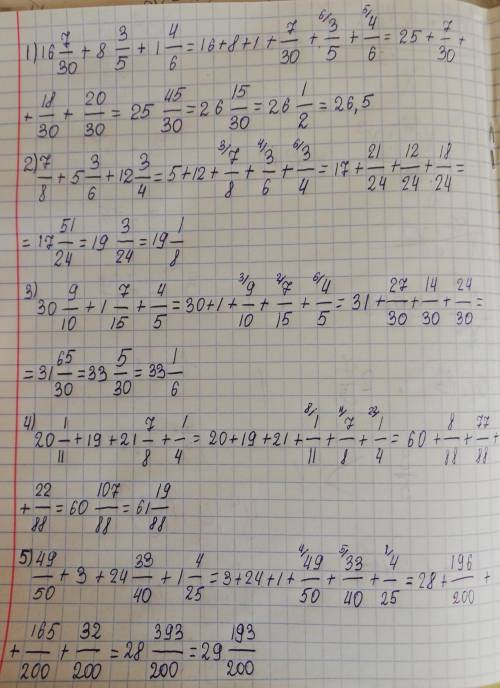 1) 16 7/30 + 8 3/5 + 1 4/6 = 16 + 8 + 1 + 7/30 + ⁶⁾3/5 + ⁵⁾4/6 = 25 + 7/30 +
+ 18/30 + 20/30 = 25 45/30 = 26 15/30 = 26 1/2 = 26,5
2) 7/8 + 5 3/6 + 12 3/4 = 5 + 12 + ³⁾7/8 + ⁴⁾3/6 + ⁶⁾3/4 = 17 + 21/24 + 12/24 + 18/24 =
= 17 51/24 = 19 3/24 = 19 1/8
3) 30 9/10 + 1 7/15 + 4/5 = 30 + 1 + ³⁾9/10 + ²⁾7/15 + ⁶⁾4/5 = 31 + 27/30 + 14/30 + 24/30 =
= 31 65/30 = 33 5/30 = 33 1/6
4) 20 1/11 + 19 + 21 7/8 + 1/4 = 20 + 19 + 21 + ⁸⁾1/11 + ¹¹⁾7/8 + ²²⁾1/4 = 60 + 8/88 + 77/88 +
+ 22/88 = 60 107/88 = 61 19/88
5) 49/50 + 3 + 24 33/40 + 1 4/25 = 3 + 24 + 1 + ⁴⁾49/50 + ⁵⁾33/40 + ²⁾4/25 = 28 + 196/200 +
+ 165/200 + 32/200 = 28 393/200 = 29 193/200